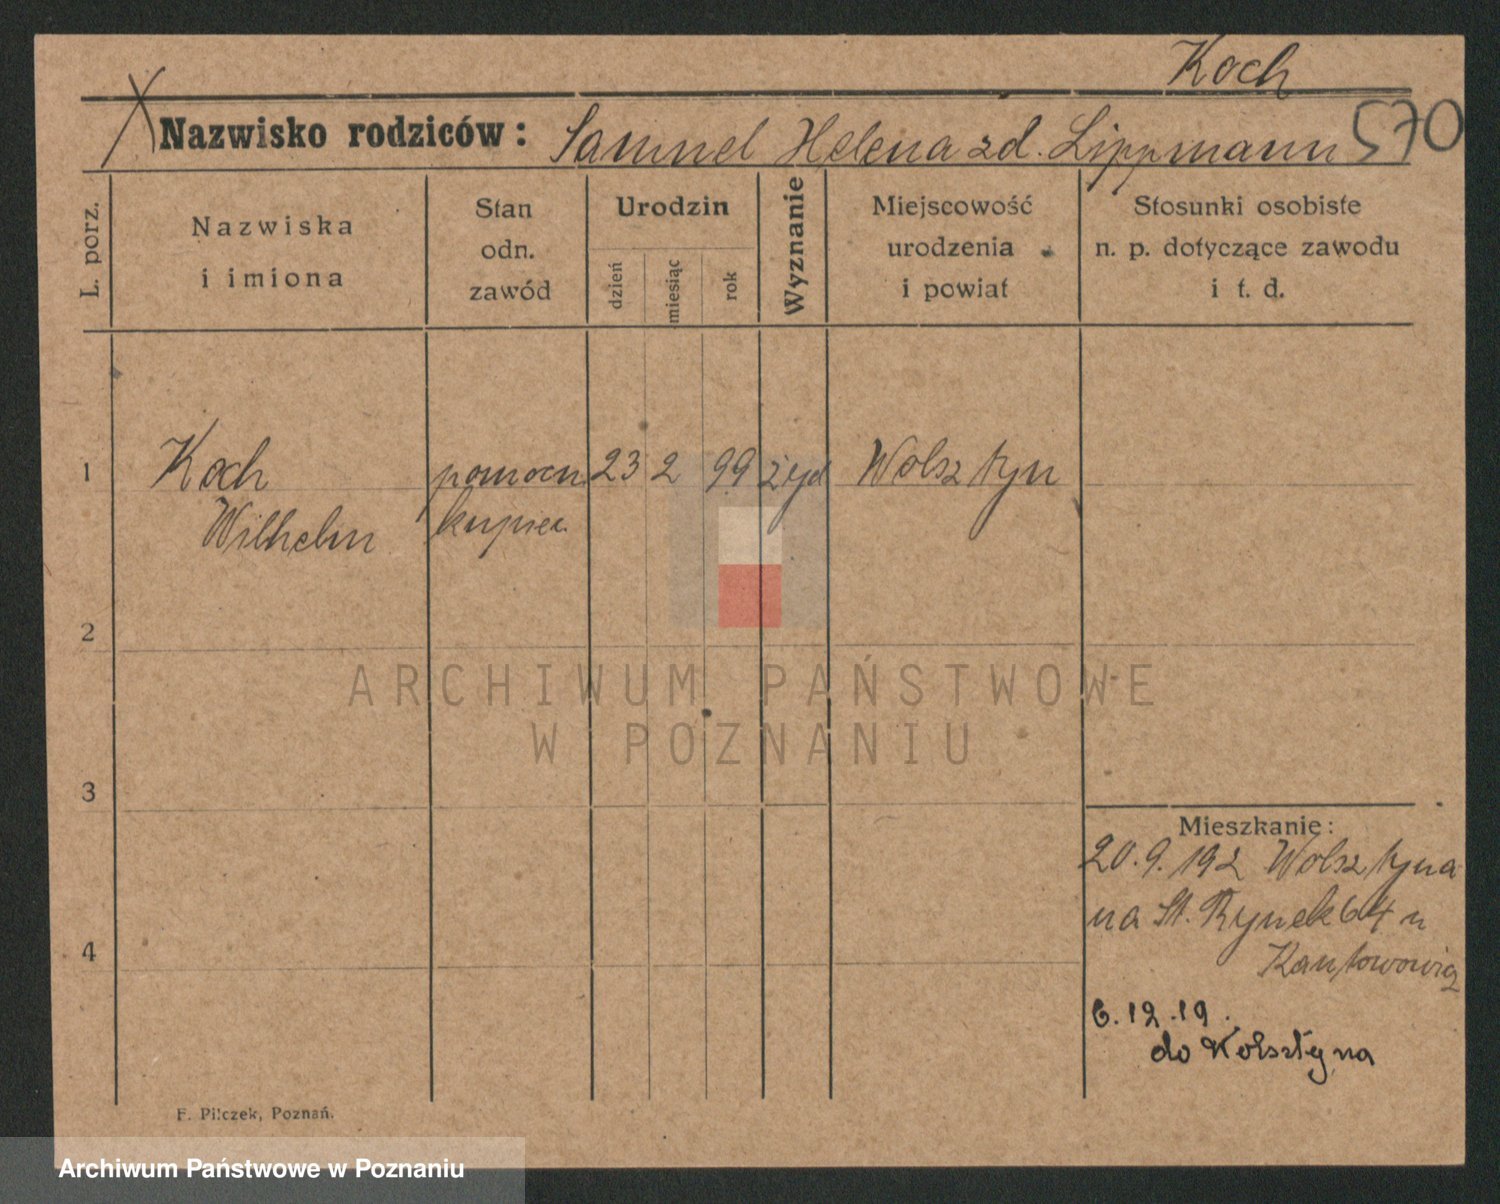 Koch
Nazwisko rodziców: Samuel Helena zd. Lippmann 570
L. porz.
Nazwiska
i imiona
Stan
odn.
zawód
Urodzin
dzień
miesiąc
rok
Wyznanie
Miejscowość
urodzenia
i powiat
Stosunki osobiste
n. p. dotyczące zawodu
i t. d.
1
Koch
Wilhelm
pomocn
kupiec
23 2 99 żyd Wolsztyn
2
ARCHIWUM PAŃSTWOWE
W POZNANIU
3
Mieszkanie:
20.9.192 Wolsztyna
na St. Rynek 64 u
4
6.12.19.
do Wolsztyna
F. Pilczek, Poznań.
Archiwum Państwowe w Poznaniu